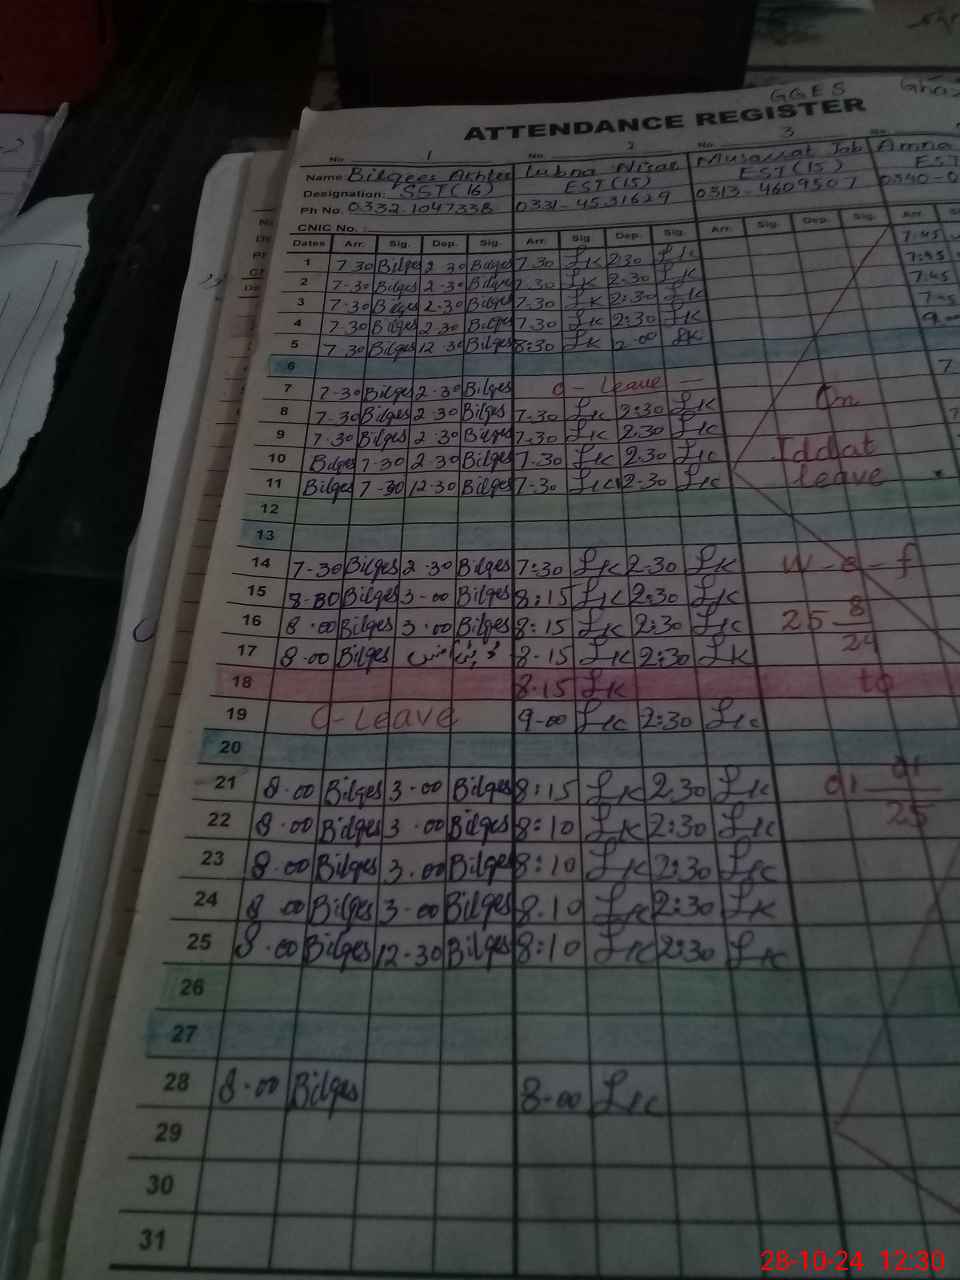 GGES
ATTENDANCE REGISTER
No. 1 No. 2 No. 3 No.
Name: Bilqees Akhter Lubna Musarrat Jab Amna
Designation: SST(16) EST(15) EST(15) EST
Ph No. 0332-1047338 0331-4531629 0313-4609507 0340-0
CNIC No.
Dates Arr. Sig. Dep. Sig. Arr. Sig Dep. Sig. Arr. Sig. Dep. Sig. Arr. S
1 7-30 Bilqes 2-30 Bilqes 7.30 LK 2.30 LK 7:45
2 7-30 Bilqes 2-30 Bilqes 7.30 LK 2.30 LK 7:45
3 7-30 Bilqes 2-30 Bilqes 7.30 LK 2:30 LK 7:45
4 7-30 Bilqes 2.30 Bilqes 7.30 LK 2:30 LK 7:45
5 7.30 Bilqes 12-30 Bilqes 8:30 LK 2-00 LK 9
6
7 7-30 Bilqes 2-30 Bilqes C-Leave 7
8 7-30 Bilqes 2-30 Bilqes 7-30 LK 2:30 LK On
9 7.30 Bilqes 2-30 Bilqes 7-30 LK 2.30 LK
10 Bilqes 7-30 2-30 Bilqes 7.30 LK 2.30 LK Iddat
11 Bilqes 7-30 12-30 Bilqes 7-30 LK 2-30 LK leave
12
13
14 7-30 Bilqes 2-30 Bilqes 7:30 LK 2.30 LK W-e-f
15 8-30 Bilqes 3-00 Bilqes 8:15 LK 2:30 LK
16 8.00 Bilqes 3.00 Bilqes 8:15 LK 2:30 LK 25-8
17 8-00 Bilqes 8-15 LK 2:30 LK 24
18 8.15 LK to
19 C-Leave 9-00 LK 2:30 LK
20
21 8.00 Bilqes 3.00 Bilqes 8:15 LK 2.30 LK 01-01
22 8.00 Bilqes 3.00 Bilqes 8:10 LK 2:30 LK 25
23 8.00 Bilqes 3.00 Bilqes 8:10 LK 2:30 LK
24 8.00 Bilqes 3-00 Bilqes 8.10 LK 2:30 LK
25 8.00 Bilqes 12-30 Bilqes 8:10 LK 2:30 LK
26
27
28 8.00 Bilqes 8-00 LK
29
30
31
28-10-24 12:30